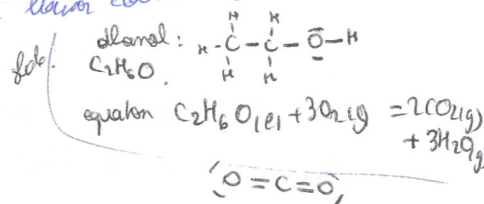 ethanol: H-C-C-O-H
C2H6O.
equation C2H6O(l) + 3O2(g) = 2CO2(g)
+ 3H2Og
O=C=O